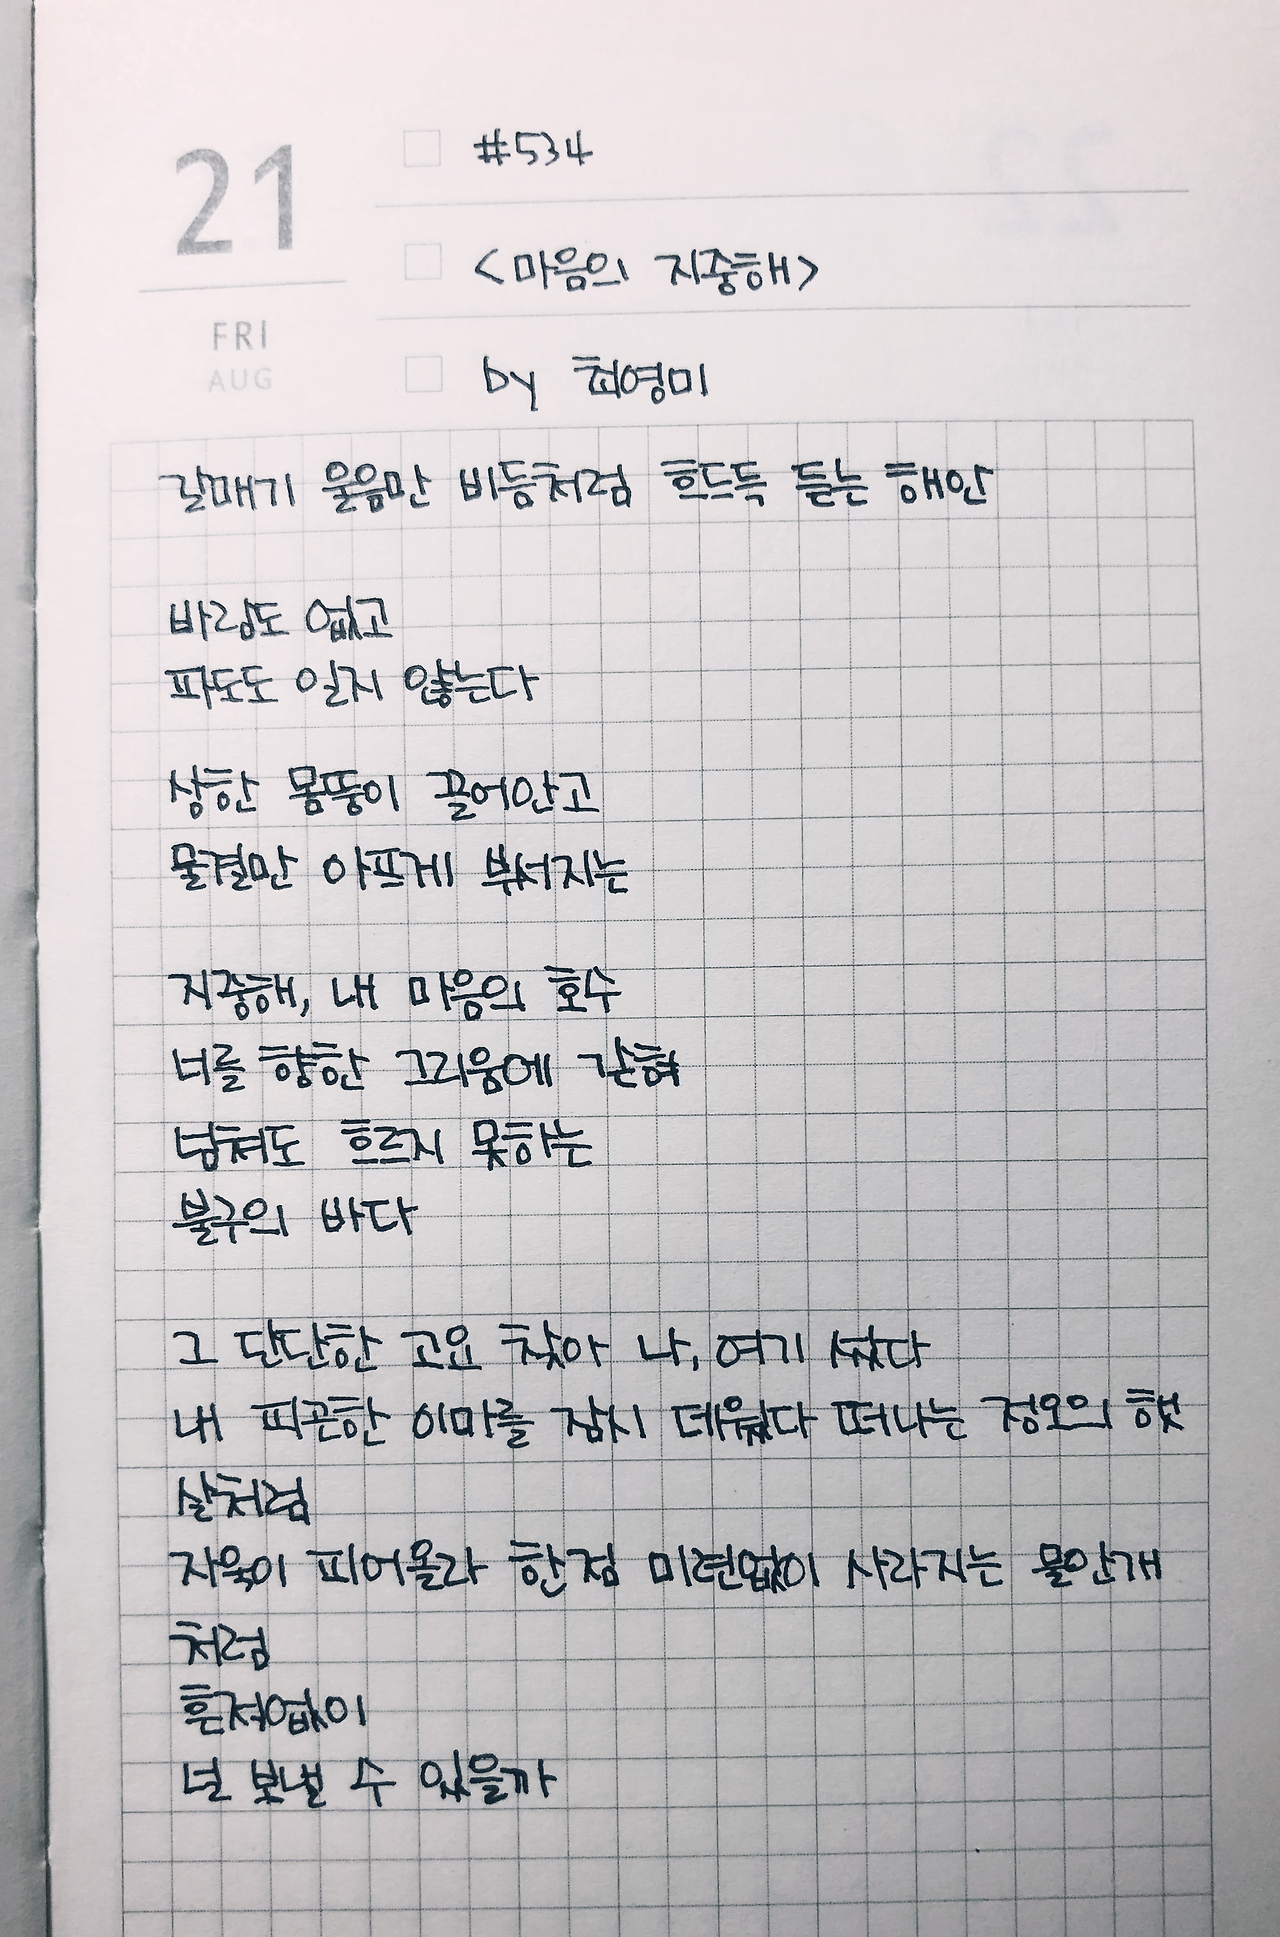 21
FRI
AUG
#534
<마음의 지중해>
by 최영미
갈매기 울음만 비듬처럼 흐드득 듣는 해안
바람도 없고
파도도 일지 않는다
상한 몸뚱이 끌어안고
물결만 아프게 부서지는
지중해, 내 마음의 호수
너를 향한 그리움에 갇혀
넘쳐도 흐르지 못하는
불구의 바다
그 단단한 고요 찾아 나, 여기 섰다
내 피곤한 이마를 잠시 데웠다 떠나는 정오의 햇
살처럼
자욱이 피어올라 한점 미련없이 사라지는 물안개
처럼
흔적없이
널 보낼 수 있을까